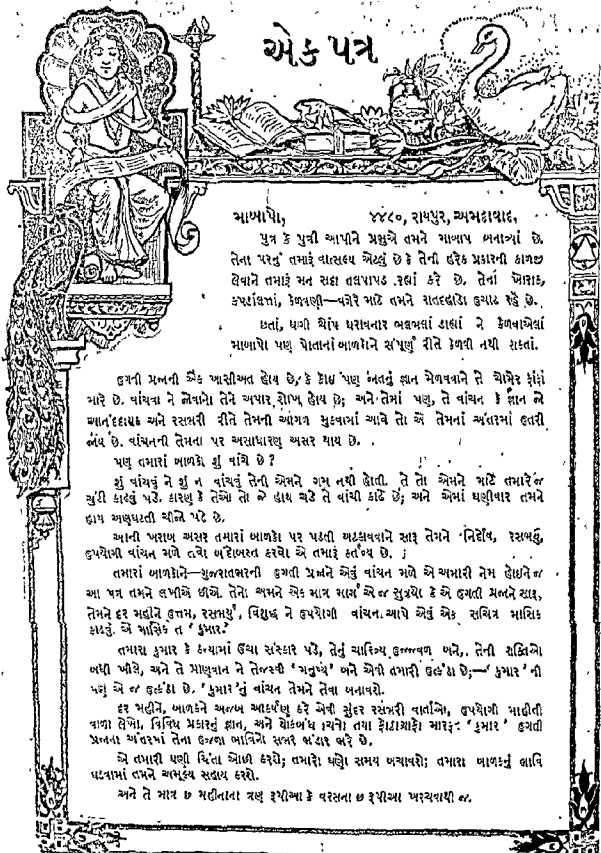 એક પત્ર
માબાપો, ૪૪૮૦, રાયપુર, અમદાવાદ.
પુત્ર કે પુત્રી આપીને પ્રભુએ તમને માબાપ બનાવ્યાં છે.
તેના પરનું તમારૂં વાત્સલ્ય એટલું છે કે તેની હરેક પ્રકારની કાળજી
લેવાને તમારૂં મન સદા તલપાપડ રહ્યાં કરે છે. તેનાં ખોરાક,
કપડાંલત્તાં, કેળવણી—વગેરે માટે તમને રાતદહાડો ઉચાટ રહે છે.
છતાં, ઘણી ચોંપ ધરાવનાર ભલભલાં ડાહ્યાં ને કેળવાએલાં
માબાપો પણ પોતાનાં બાળકોને સંપૂર્ણ રીતે કેળવી નથી શકતાં.
ઉગતી પ્રજાની એક ખાસીઅત હોય છે, કે કોઇ પણ જાતનું જ્ઞાન મેળવવાને તે ચોમેર ફાંફાં
મારે છે. વાંચવા ને જોવાનો તેને અપાર શોખ હોય છે; અને તેમાં પણ, તે વાંચન કે જ્ઞાન જો
આનંદદાયક અને રસભરી રીતે તેમની આગળ મુકવામાં આવે તો એ તેમનાં અંતરમાં ઉતરી
જાય છે. વાંચનની તેમના પર અસાધારણ અસર થાય છે.
પણ તમારાં બાળકો શું વાંચે છે?
શું વાંચવું ને શું ન વાંચવું તેની એમને ગમ નથી હોતી. તે તો એમને માટે તમારેજ
ચુંટી કાઢવું પડે. કારણ કે તેઓ તો જે હાથ ચઢે તે વાંચી કાઢે છે; અને એમાં ઘણીવાર તમને
હાથ અણઘટતી ચીજો પડે છે.
આની ખરાબ અસર તમારાં બાળકો પર પડતી અટકાવવાને સારૂ તેમને નિર્દોષ, રસભર્યું,
ઉપયોગી વાંચન મળે તેવો બંદોબસ્ત કરવો એ તમારૂં કર્તવ્ય છે.
તમારાં બાળકોને—ગુજરાતભરની ઉગતી પ્રજાને એવું વાંચન મળે એ અમારી નેમ હોઇને જ
આ પત્ર તમને લખીએ છીએ. તેનો અમને એક માત્ર માર્ગ એ જ સુઝ્યો કે એ ઉગતી પ્રજાને સારૂ,
તેમને દર મહીને ઉત્તમ, રસભર્યું, વિશુદ્ધ ને ઉપયોગી વાંચન આપે એવું એક સચિત્ર માસિક
કાઢવું. એ માસિક તે ‘કુમાર.’
તમારા કુમાર કે કન્યામાં ઉંચા સંસ્કાર પડે, તેનું ચારિત્ર્ય ઉજ્જ્વળ બને, તેની શક્તિઓ
બધી ખીલે, અને તે પ્રાણવાન ને તેજસ્વી ‘મનુષ્ય’ બને એવી તમારી ઉત્કંઠા છે;—‘કુમાર’ની
પણ એ જ ઉત્કંઠા છે. ‘કુમાર’નું વાંચન તેમને તેવા બનાવશે.
દર મહીને, બાળકને અજબ આકર્ષણ કરે એવી સુંદર રસભરી વાર્તાઓ, ઉપયોગી માહીતી
વાળા લેખો, વિવિધ પ્રકારનું જ્ઞાન, અને થોકબંધ ચિત્રો તથા ફોટોગ્રાફો મારફત ‘કુમાર’ ઉગતી
પ્રજાના અંતરમાં તેના ઉજળા ભાવિનો સભર ભંડાર ભરે છે.
એ તમારી ઘણી ચિંતા ઓછી કરશે; તમારો ઘણો સમય બચાવશે; તમારા બાળકનું ભાવિ
ઘડવામાં તમને અમૂલ્ય સહાય કરશે.
અને તે માત્ર છ મહીનાના ત્રણ રૂપીઆ કે વરસના છ રૂપીઆ ખરચવાથી જ.